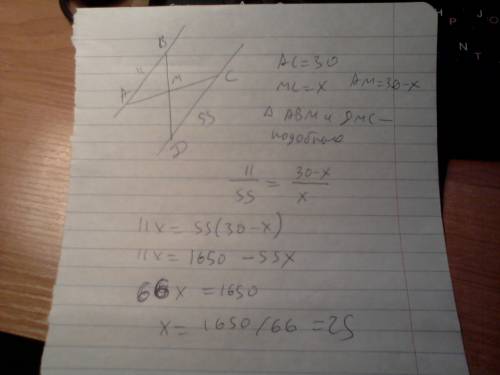 B
11
A
M
C
55
D
AC=30
MC=x AM=30-x
Δ ABM и DMC —
подобные
11/55 = 30-x/x
11x = 55(30-x)
11x = 1650 - 55x
66x = 1650
x = 1650/66 = 25